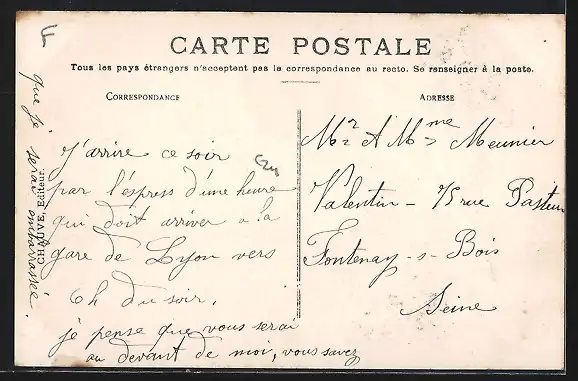 CARTE POSTALE
Tous les pays étrangers n'acceptent pas la correspondance au recto. Se renseigner à la poste.
CORRESPONDANCE
J'arrive ce soir
par l'éspress d'une heure
qui doit arriver a la
gare de Lyon vers
6h du soir,
je pense que vous serai
au devant de moi, vous savez
que je serai embarrassée.
CHAUVE, Editeur.
ADRESSE
Mr & Mme Meunier
Valentin - rue Pasteur
Fontenay-s-Bois
Seine